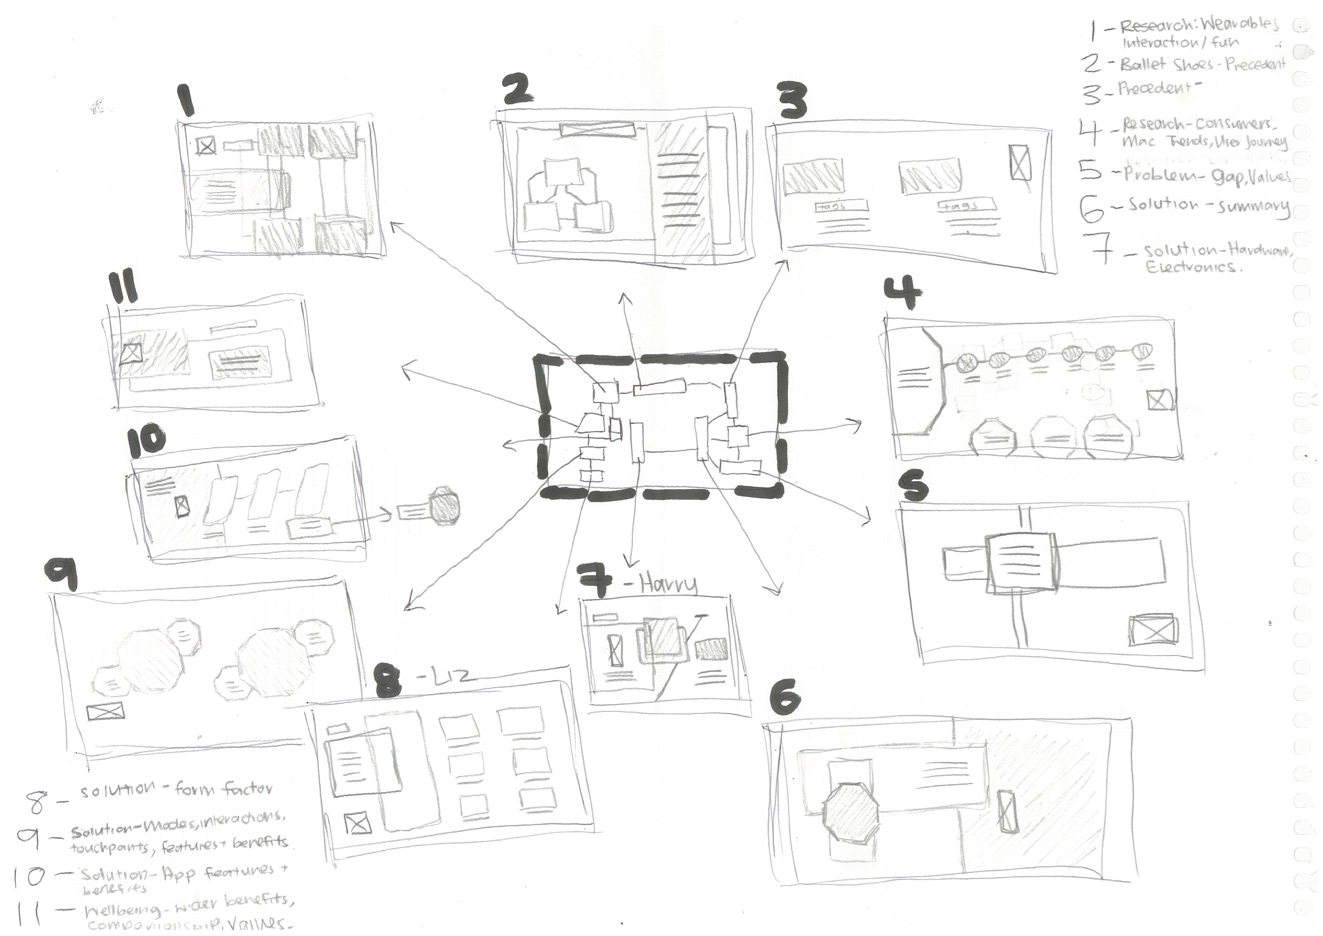 1 - Research: Wearables
Interaction/fun
2 - Ballet Shoes - Precedent
3 - Precedent -
4 - Research - Consumers,
Mac Trends, User Journey
5 - Problem - gap, Values
6 - Solution - summary
7 - Solution - Hardware,
Electronics.
1
2
3
tags
tags
11
4
10
5
9
7 - Harry
8 - Liz
6
8 - Solution - form factor
9 - Solution - Modes, interactions,
touchpoints, features + benefits.
10 - Solution - App features +
benefits
11 - Wellbeing - wider benefits,
companionship, Values.